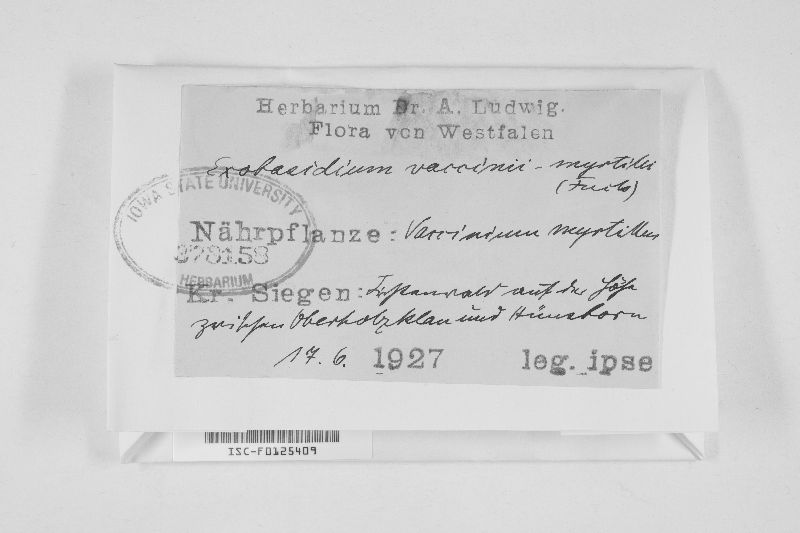 Herbarium Dr. A. Ludwig.
Flora von Westfalen
Exobasidium vaccinii-myrtilli
(Fuck)
IOWA STATE UNIVERSITY
Nährpflanze: Vaccinium myrtillus
378158
HERBARIUM
Kr. Siegen: auf der Höhe
zwischen Oberholzklau und Hünsborn
17. 6. 1927 leg. ipse
ISC-F0125409